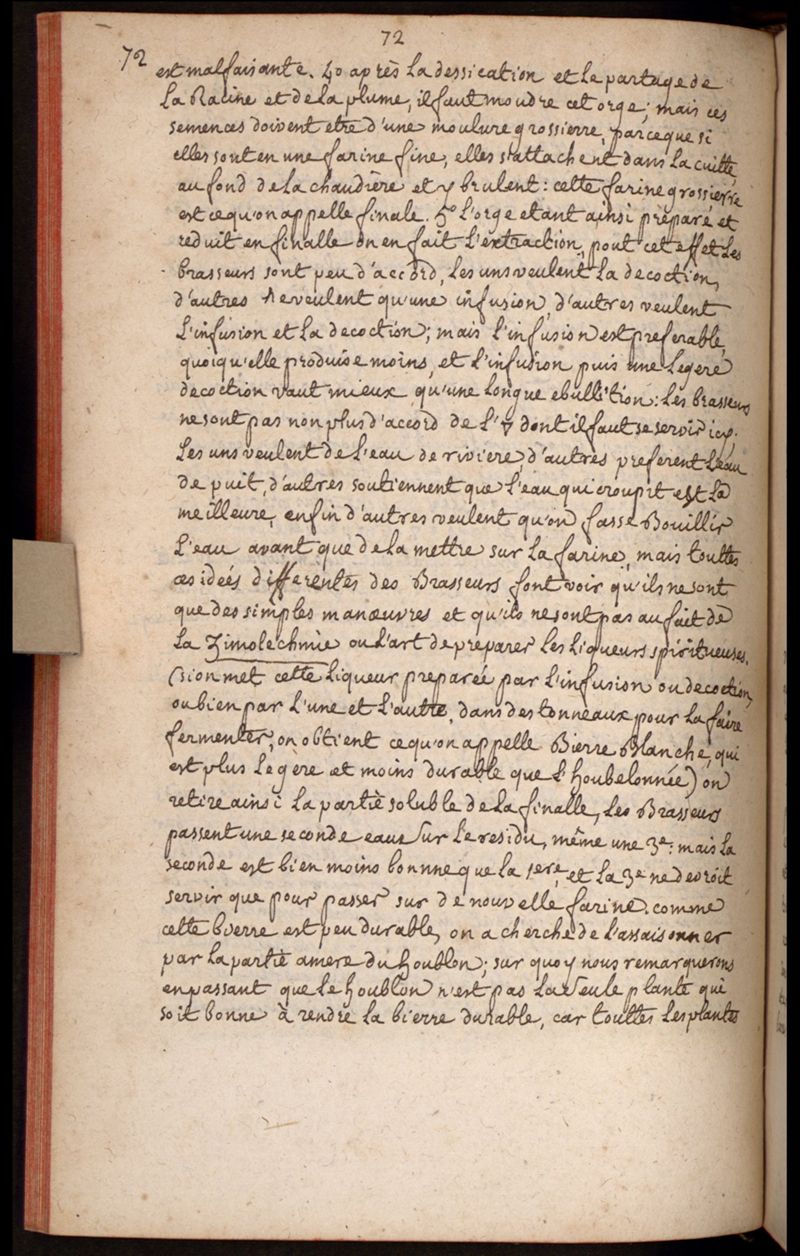 72
72
est malfaisante. 4o après la dessication et le partage de
la Racine et de la plume, il faut moudre cet orge; mais ces
semences doivent etre d'une moulure grossierre, parceque si
elles sont en une farine fine, elles s'attachent dans la cuitte
au fond de la chaudiêre et y brulent: cette farine grossierre
est ce qu'on appelle finale. 5o L'orge etant ainsi preparé et
reduit en finalle on en fait l'extraction, pour cet effet les
brasseurs sont peu d'accord, les uns veulent la decoction,
d'autres ne veulent qu'une infusion, d'autres veulent
l'infusion et la decoction; mais l'infusion est preferable,
quoiqu'elle produise moins, et l'infusion puis une legere
decoction vaut mieux qu'une longue ebullition: les brasseurs
ne sont pas non plus d'accord de l'▽ dont il faut se servir icy.
les uns veulent de l'eau de riviere, d'autres preferent l'eau
de puit, d'autres soutiennent que l'eau qui croupit est la
meilleure, enfin d'autres veulent qu'on fasse Bouillir
l'eau avant que de la mettre sur la farine, mais touttes
ces ideés differentes des Brasseurs font voir qu'ils ne sont
que des simples manœuvres et qu'ils ne sont pas au fait de
la Zimolechnie ou l'art de preparer les liqueurs spiritueuses.
(Si on met cette liqueur preparée par l'infusion ou decoction,
ou bien par l'une et l'autre, dans des tonneaux pour la faire
fermenter, on obtient ce qu'on appelle Bierre Blanche, qui
est plus legere et moins durable que l'houbelonnée) on
retire ainsi la partie soluble de la finalle, les Brasseurs
passent une seconde eaue sur le residu, même une 3e: mais la
seconde est bien moins bonnne que la 1ere, et la 3e ne devroit
servir que pour passer sur de nouvelle farine. comme
cette bierre est peu durable, on a cherché de l'assaisonner
par la partie amere du houblon; sur quoy nous remarquerons
en passant que le houblon n'est pas la seule plante qui
soit bonne à rendre la bierre durable, car touttes les plantes